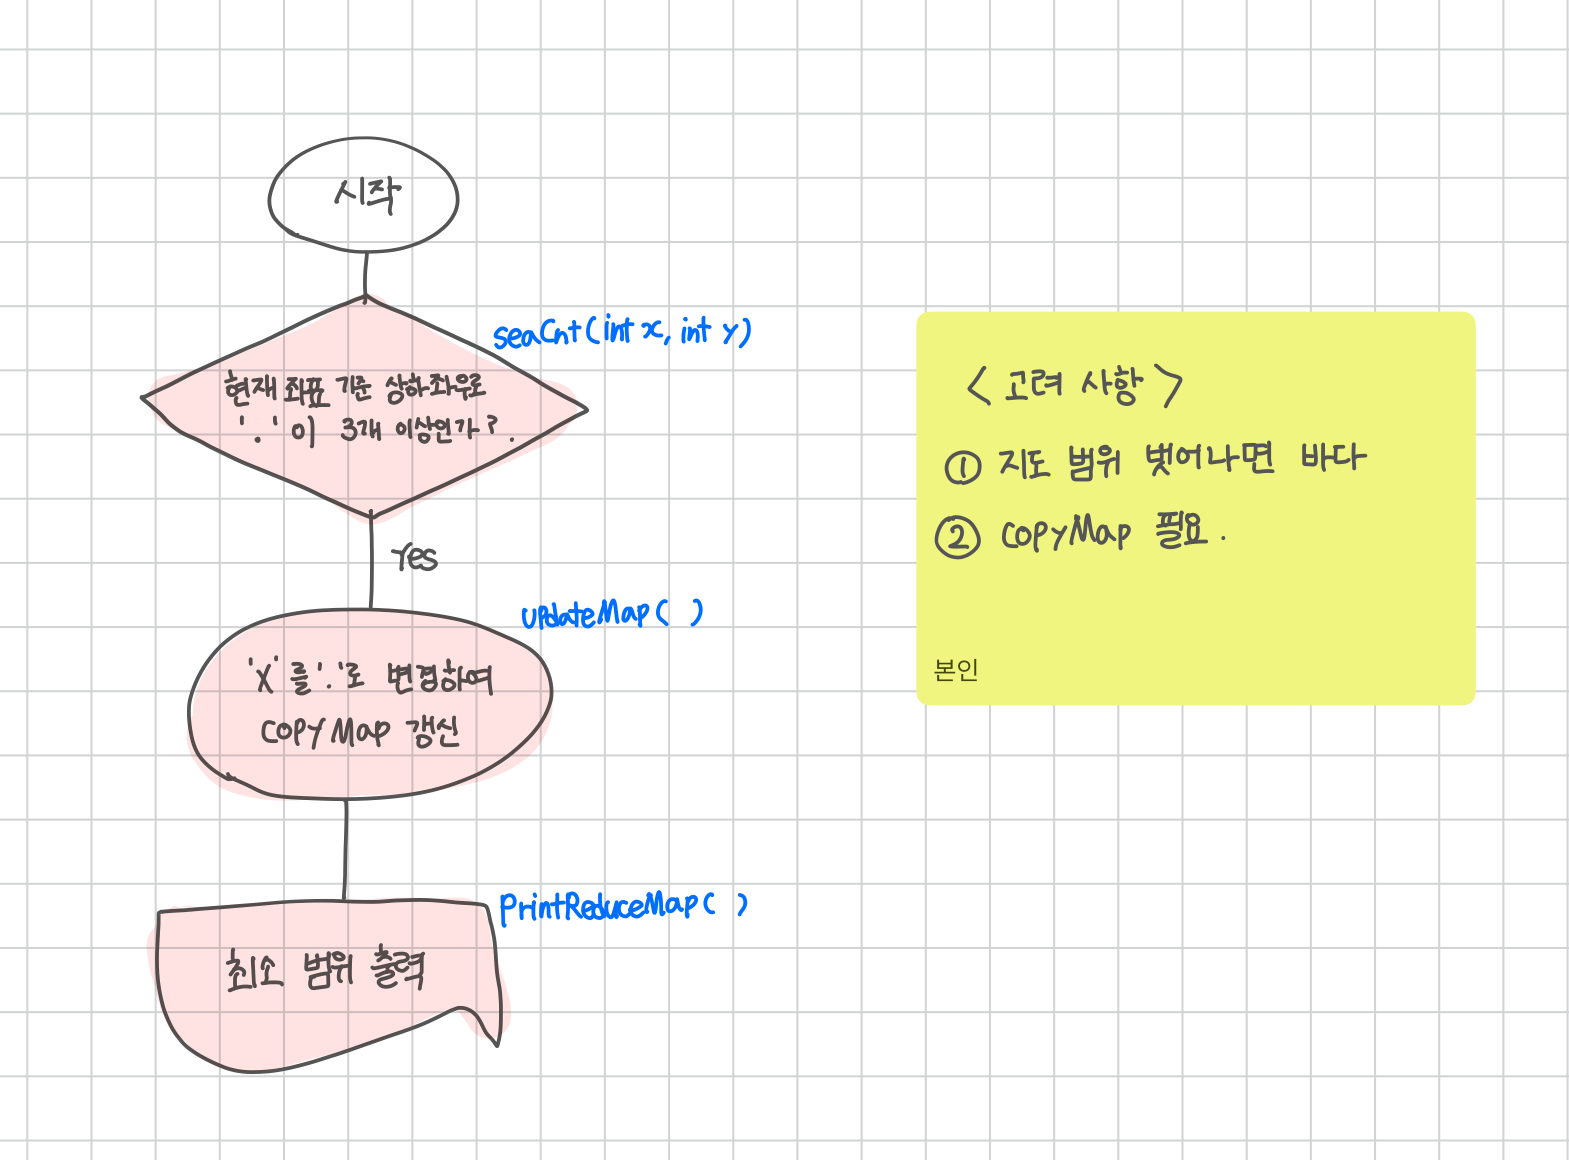 시작
seaCnt(int x, int y)
현재 좌표 기준 상하좌우로
'.' 이 3개 이상인가?.
Yes
updateMap( )
'X'를 '.'로 변경하여
copyMap 갱신
printReduceMap( )
최소 범위 출력
< 고려 사항 >
① 지도 범위 벗어나면 바다
② copyMap 필요.
본인